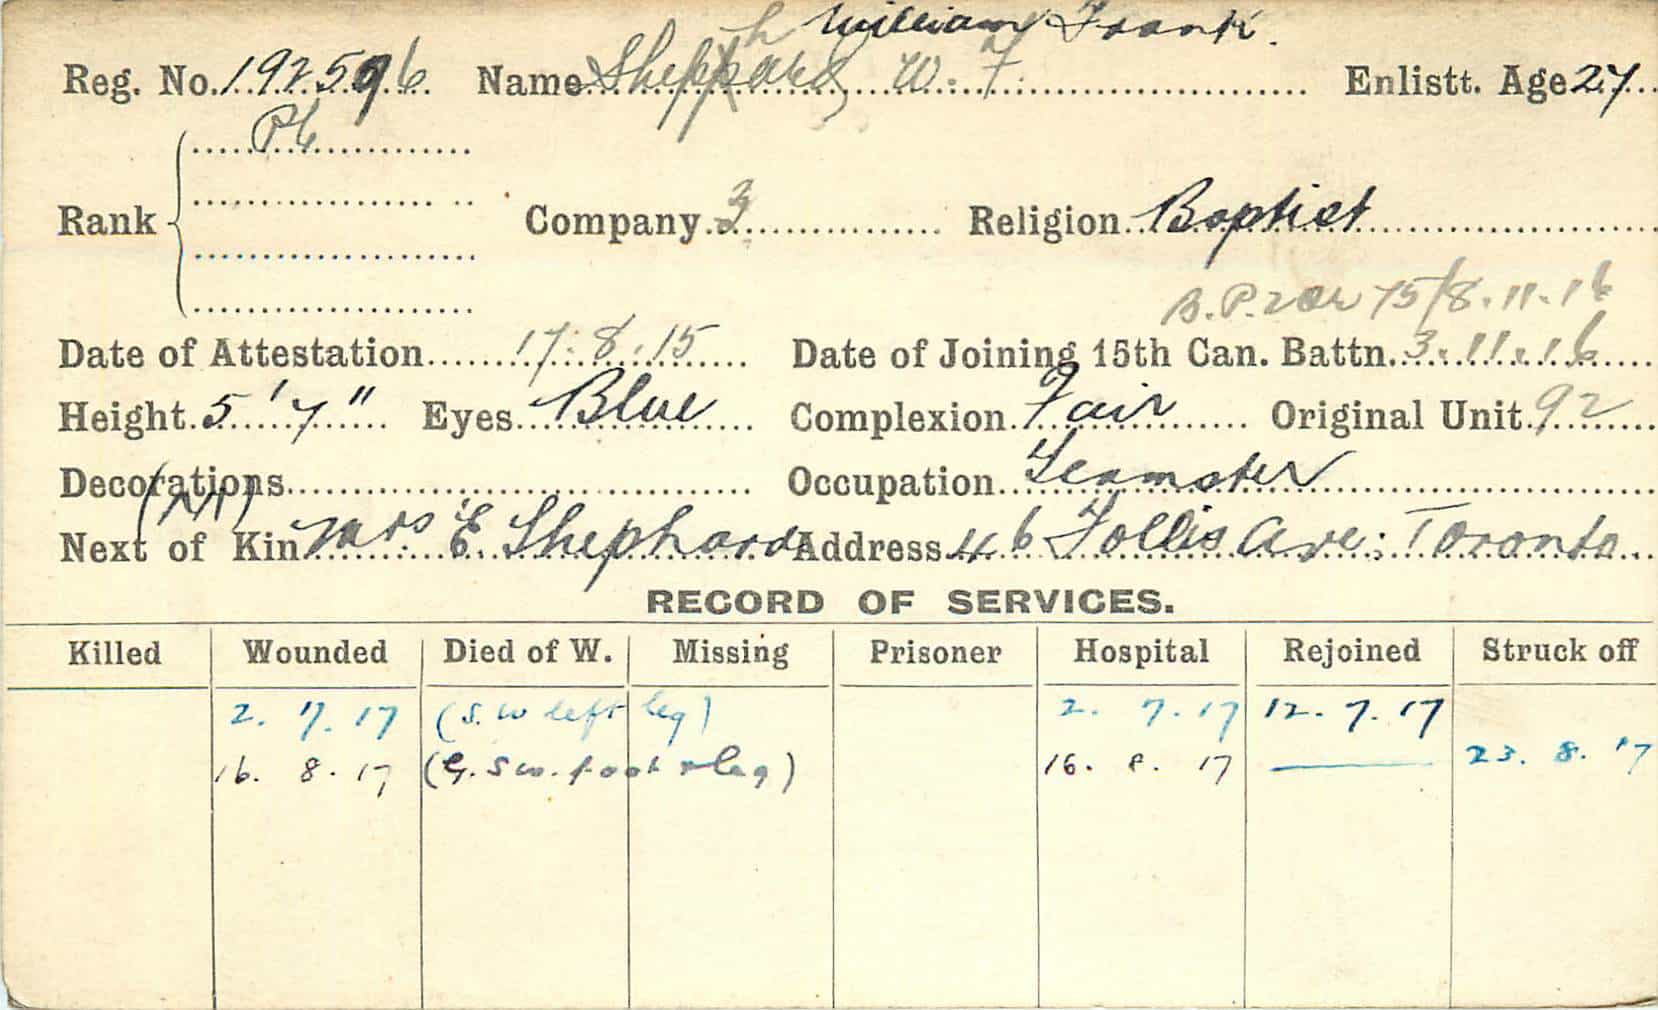 William Frank.
Reg. No. 192596 Name Shephard, W. F. Enlistt. Age 27
Pte
Rank Company 3 Religion Baptist
B.P. 75/8.11.16
Date of Attestation 17.8.15 Date of Joining 15th Can. Battn. 3.11.16
Height 5'7" Eyes Blue Complexion Fair Original Unit 92
Decorations Occupation Teamster
Next of Kin Mrs E. Shephard Address 46 Follis Ave; Toronto
RECORD OF SERVICES.
Killed Wounded Died of W. Missing Prisoner Hospital Rejoined Struck off
2. 7. 17 (S.W left leg) 2. 7. 17 12. 7. 17
16. 8. 17 (G.S.W. foot & leg) 16. 8. 17 — 23. 8. 17